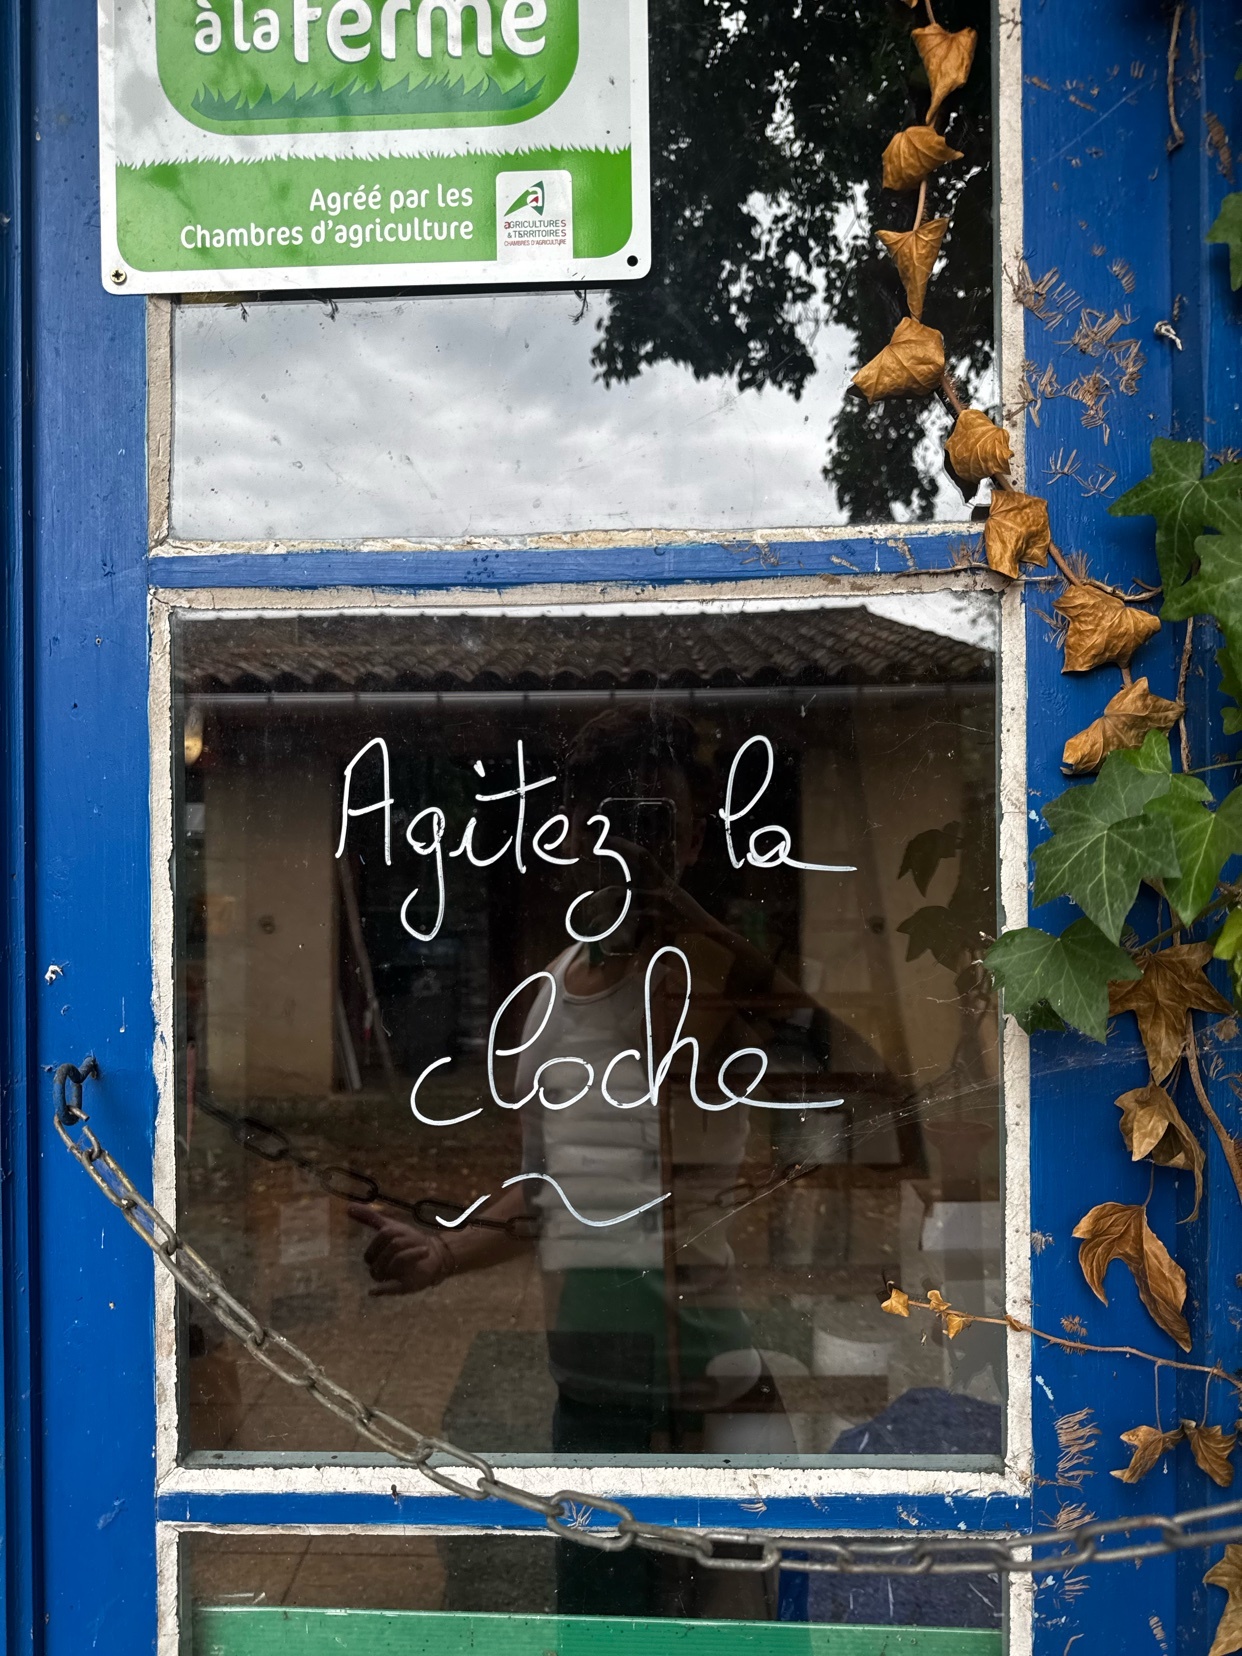 à la ferme
Agréé par les
Chambres d'agriculture
agricultures
& territoires
chambres d'agriculture
Agitez la
cloche